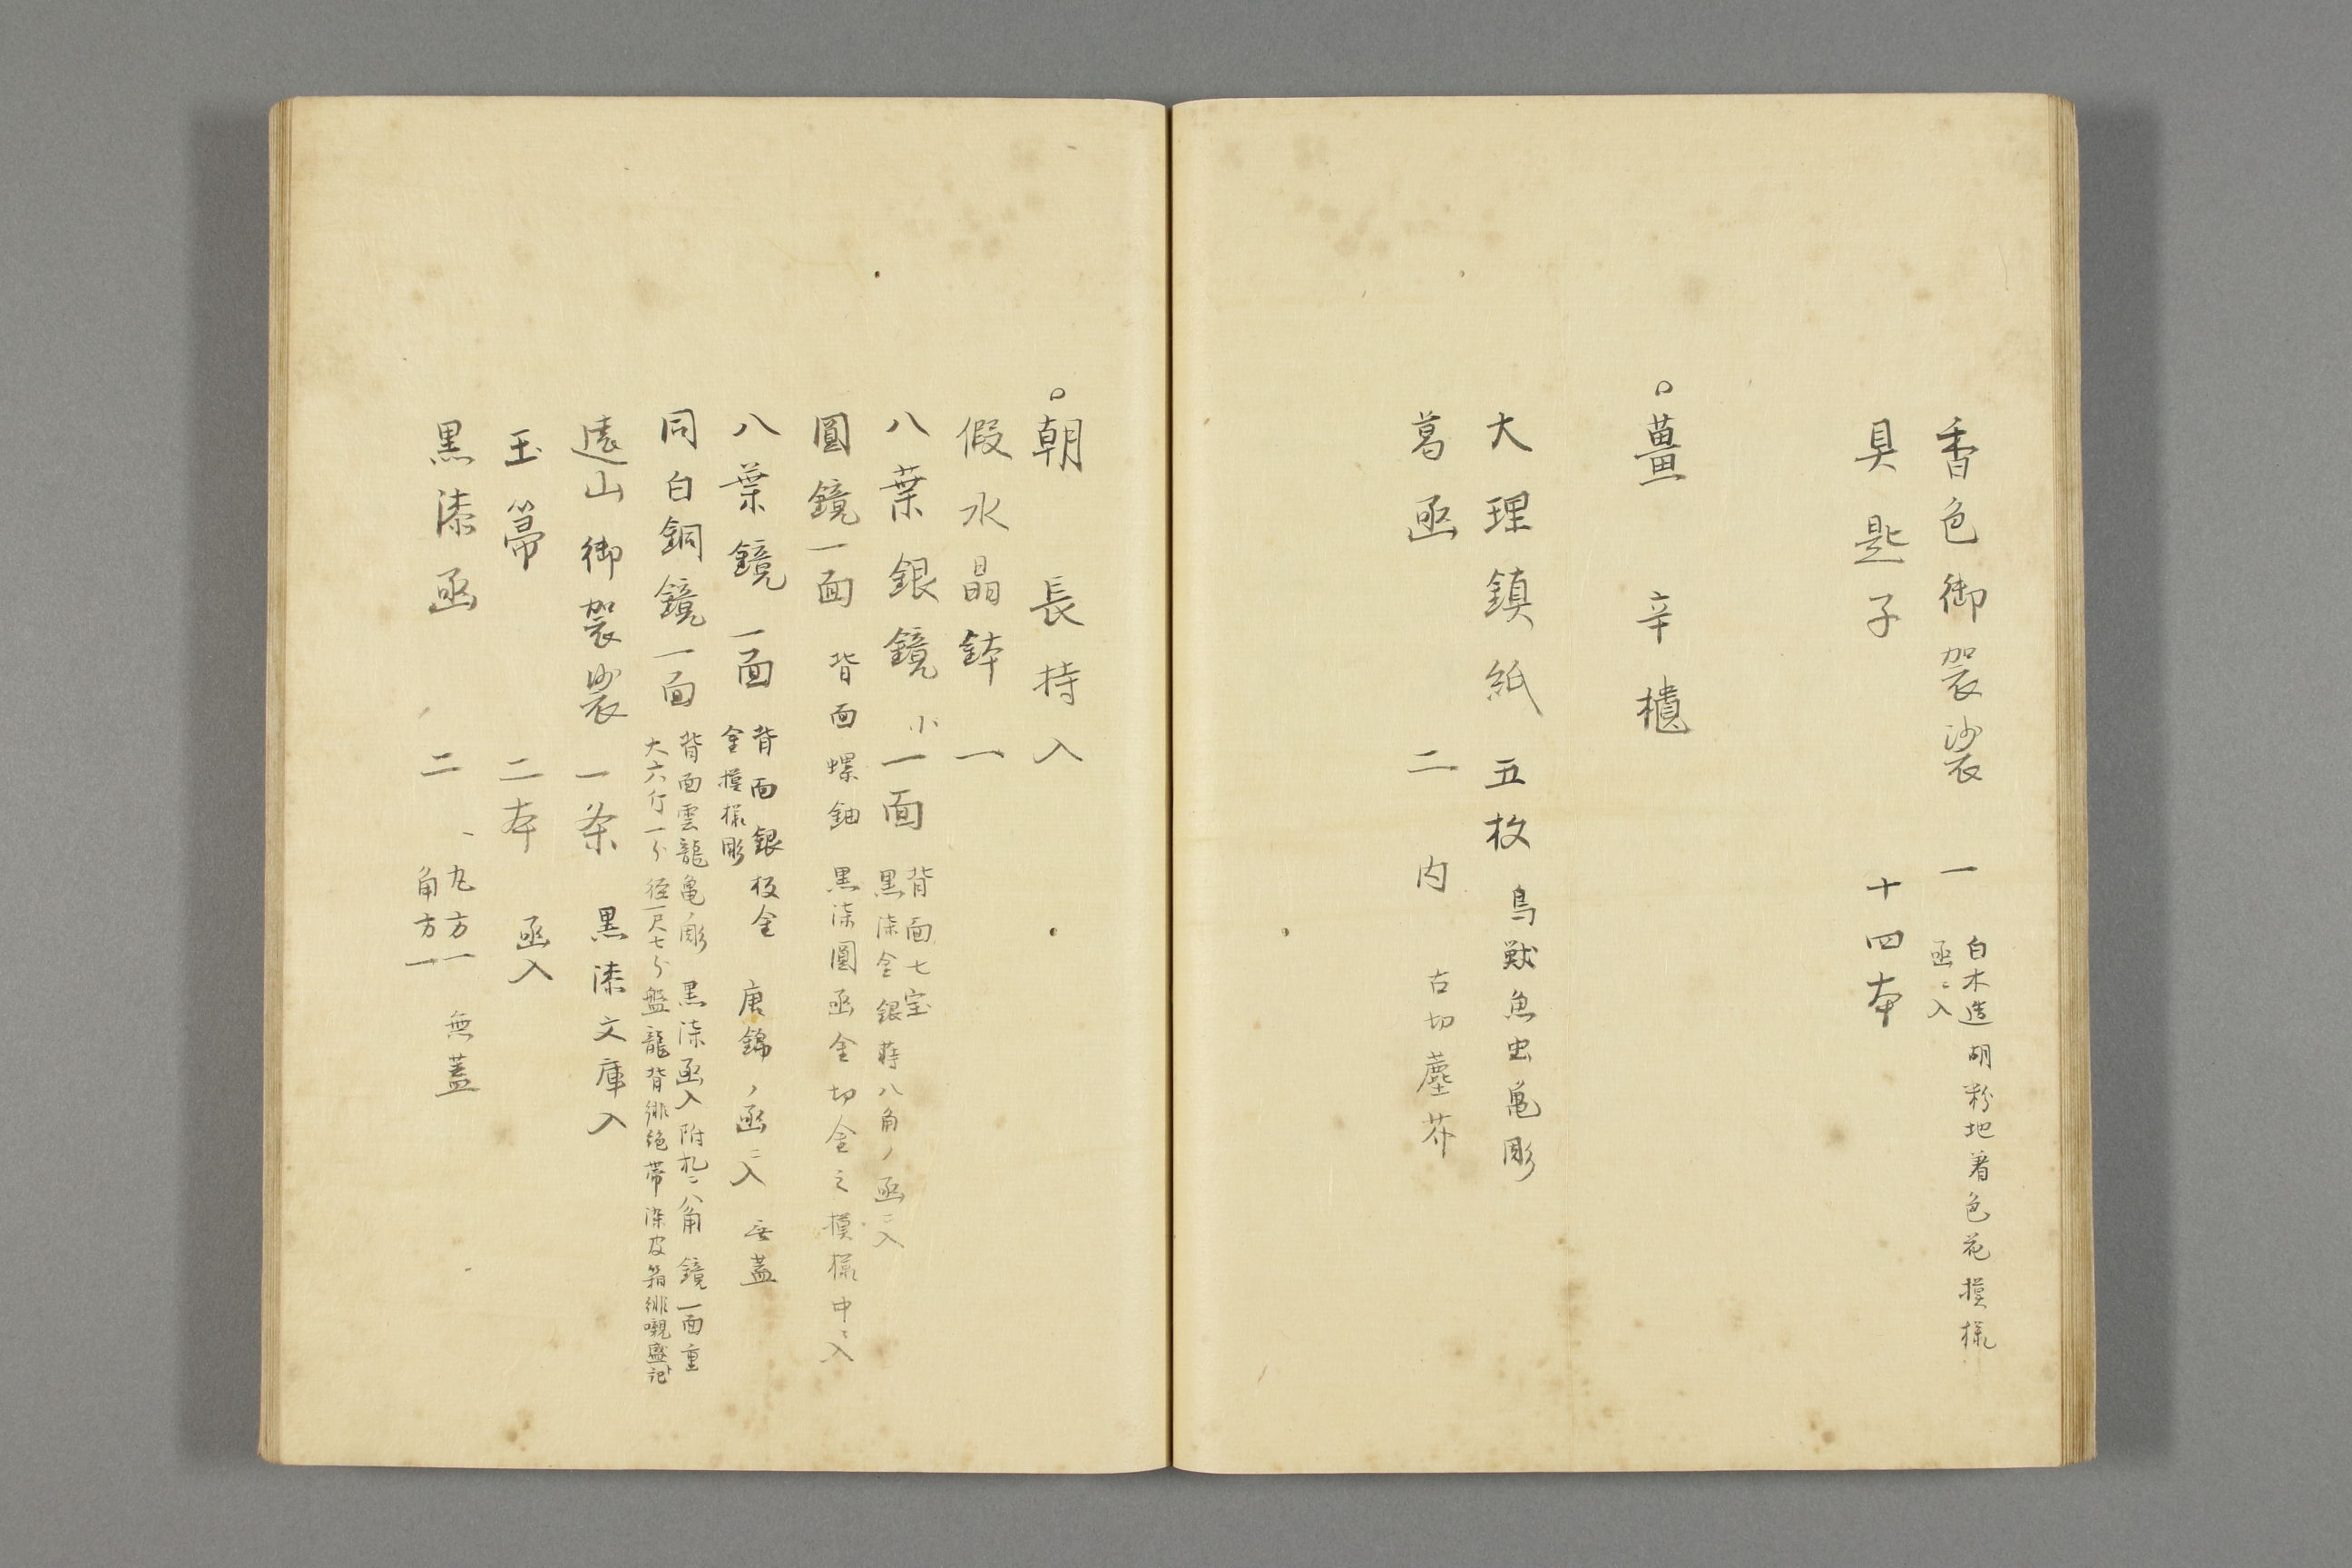 香色御袈裟　一　白木造胡粉地着色花摸様
函ニ入
貝匙子　十四本
○薑　辛櫃
大理鎮紙　五枚　鳥獣魚虫亀彫
葛函　二　内　古切塵芥
○朝　長持入
假水晶鉢　一
八葉銀鏡　小一面　背面七宝
黒漆金銀蒔八角ノ函ニ入
圓鏡一面　背面螺鈿　黒漆圓函金切金之摸様中ニ入
八葉鏡　一面　背面銀板金　唐錦ノ函ニ入　無蓋
金摸様彫
同白銅鏡一面　背面雲龍亀ノ彫　黒漆函入附札ニ八角鏡一面重
大六斤一分径一尺七分盤龍背緋絁帯漆皮箱緋嚫盛ト記
遠山御袈裟　一条　黒漆文庫入
玉箒　二本　函入
黒漆函　二　丸方一　無蓋
角方一